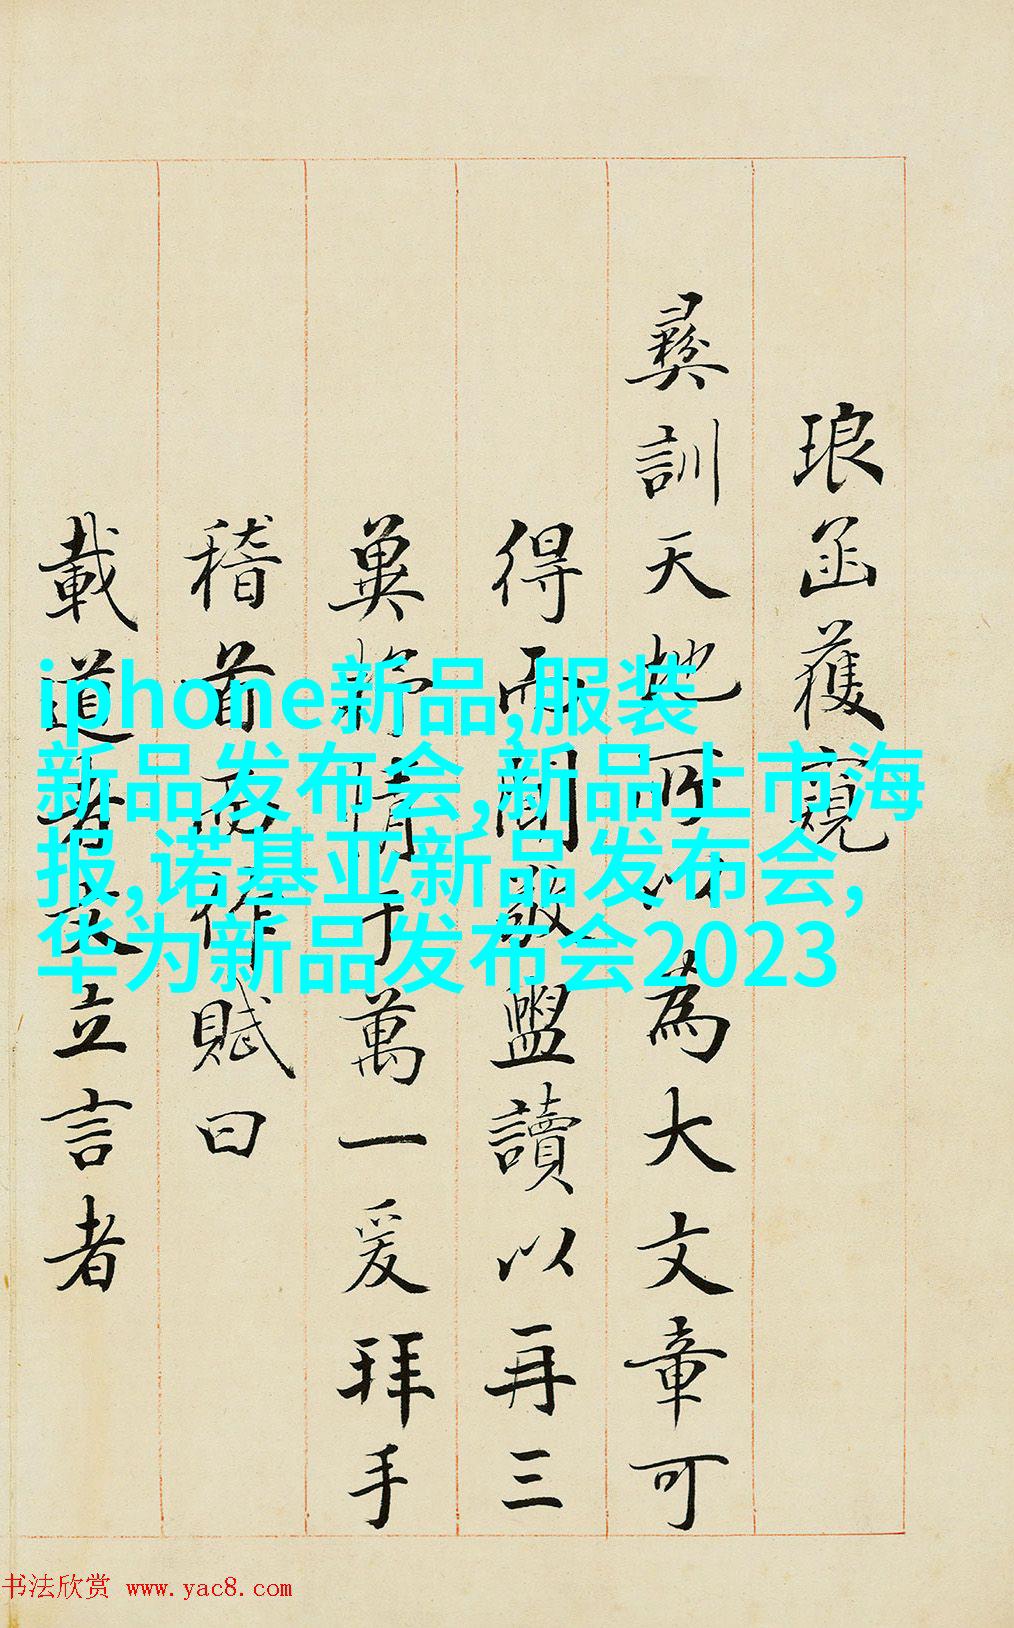 琅函獲窺
彝訓天地所以為大文章可
得而聞敬盥讀以再三
冀情于萬一爰拜手
稽首而作賦曰
載道者文立言者
iphone新品,服装
新品发布会,新品上市海
报,诺基亚新品发布会,
华为新品发布会2023
书法欣赏 www.yac8.com